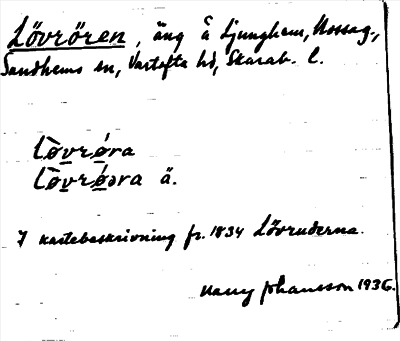 Lövrören, äng å Ljunghem, Mossag.,
Sandhems sn, Vartofta hd, Skarab. l.
Lo̲vrǿ̲ra
Lo̲vrǿ̲ra ä.
I kartebeskrivning fr. 1834 Lövruderna.
Johansson 1936.